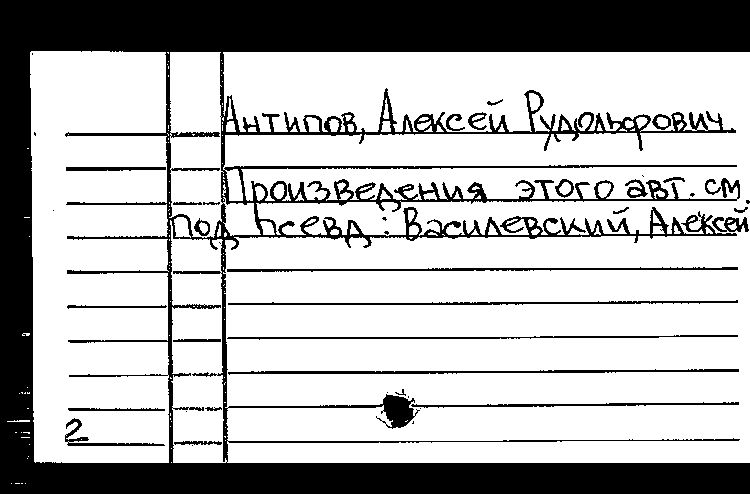 Антипов, Алексей Рудольфович.
Произведения этого авт. см.
под псевд: Василевский, Алексей
2